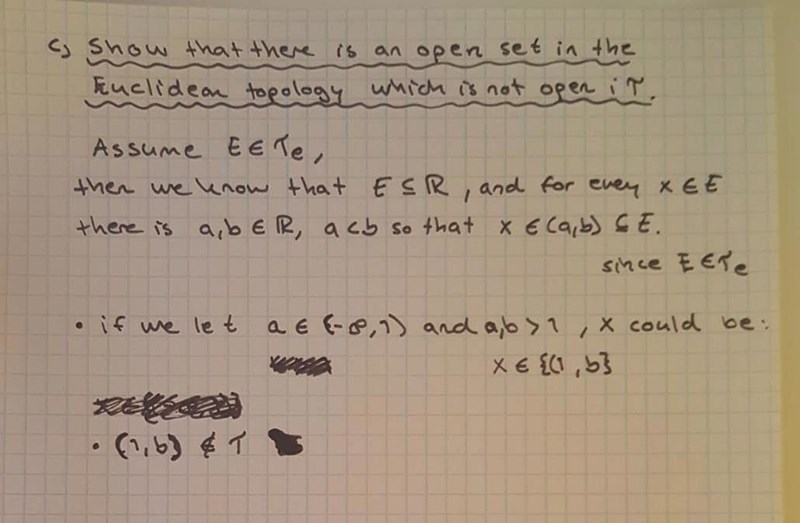 c) Show that there is an open set in the
Euclidean topology which is not open i τ.
Assume E ∈ τe,
then we know that E ⊆ ℝ, and for every x ∈ E
there is a,b ∈ ℝ, a<b so that x ∈ (a,b) ⊆ E.
since E ∈ τe
• if we let a ∈ (-∞,1) and a,b > 1, x could be:
x ∈ {(1,b}
• (1,b) ∉ τ